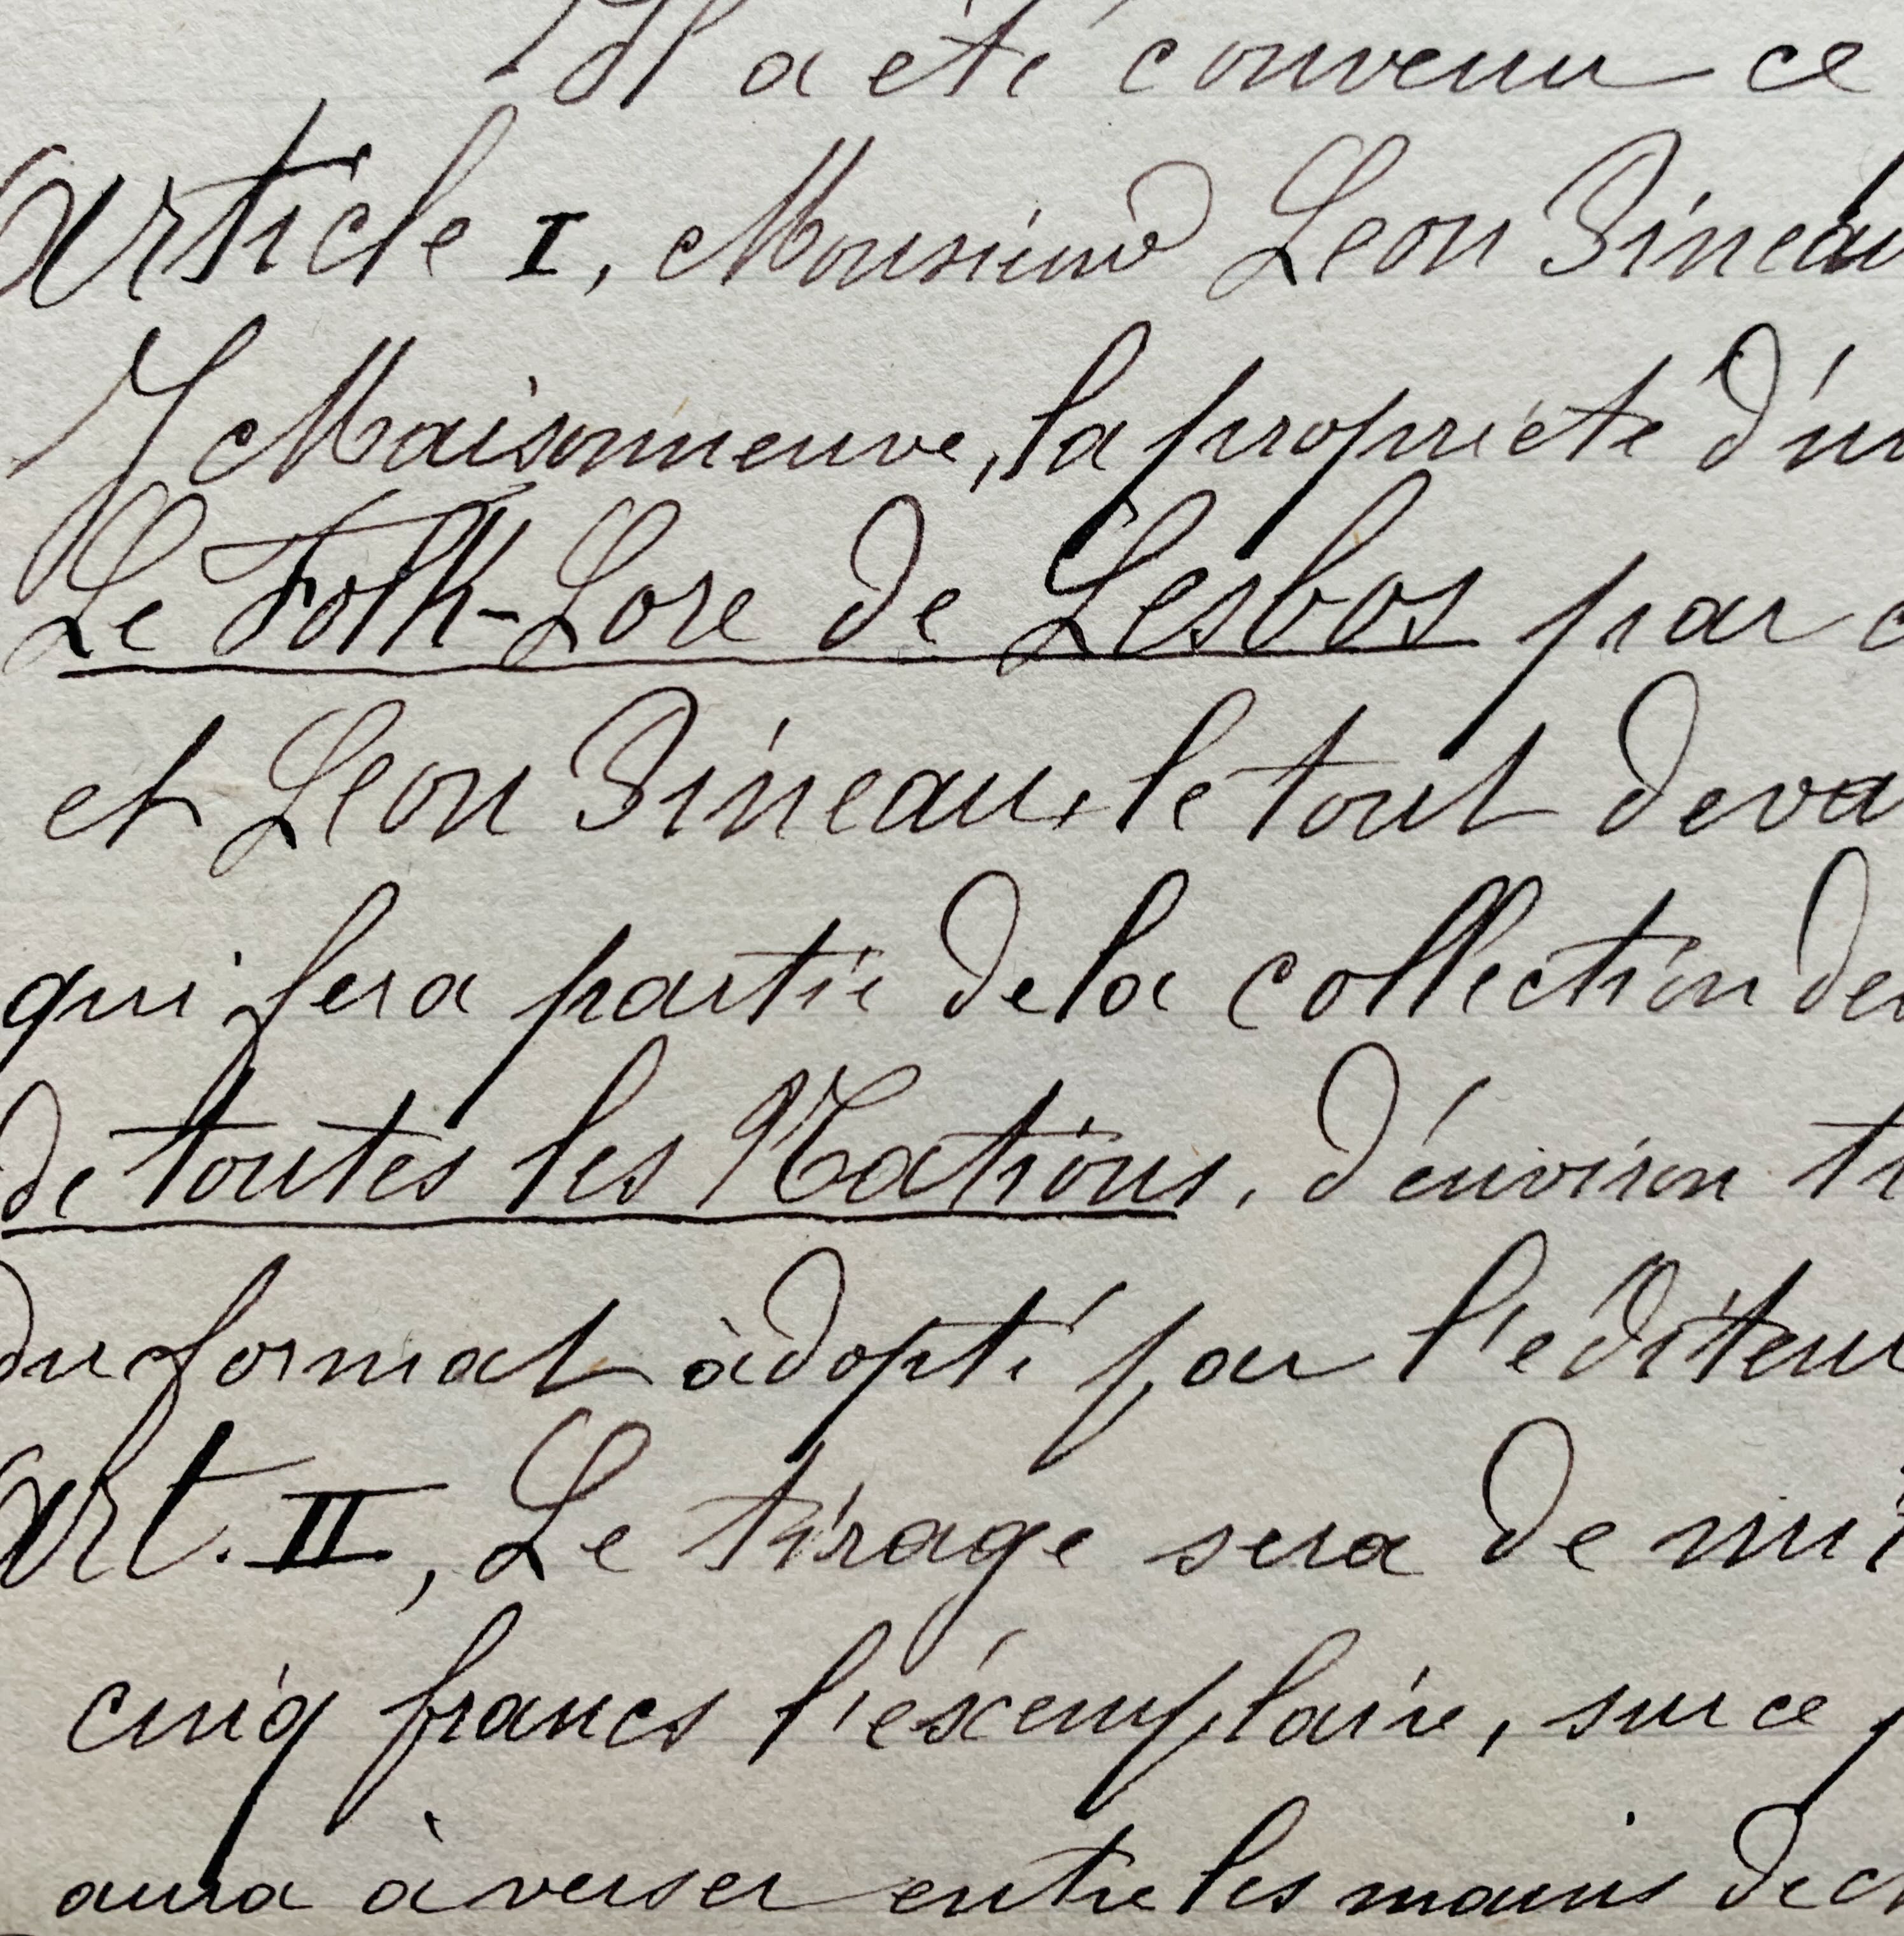 Il a été convenu ce
Article I, Monsieur Leon Pineau
J Maisonneuve, la propriété d'un
Le Folk-Lore de Lesbos par
et Leon Pineau, le tout deva
qui fera partie de la collection des
de toutes les Nations, d'environ
du format àdopté par l'éditeur
Art. II, Le tirage sera de mil
cinq francs l'éxemplaire, sur ce
aura à verser entre les mains de